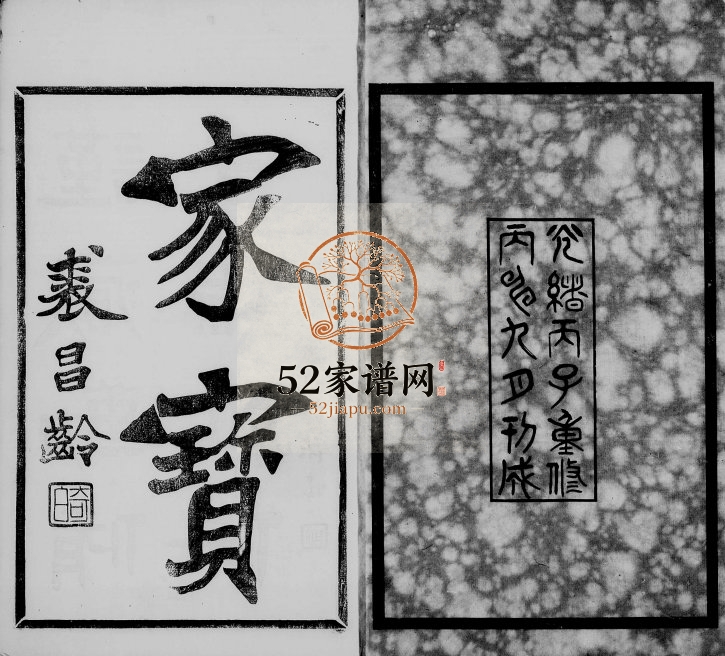 光緒丙子重修
丙 九月刊成
家寶
裘昌齡
52家谱网
52jiapu.com